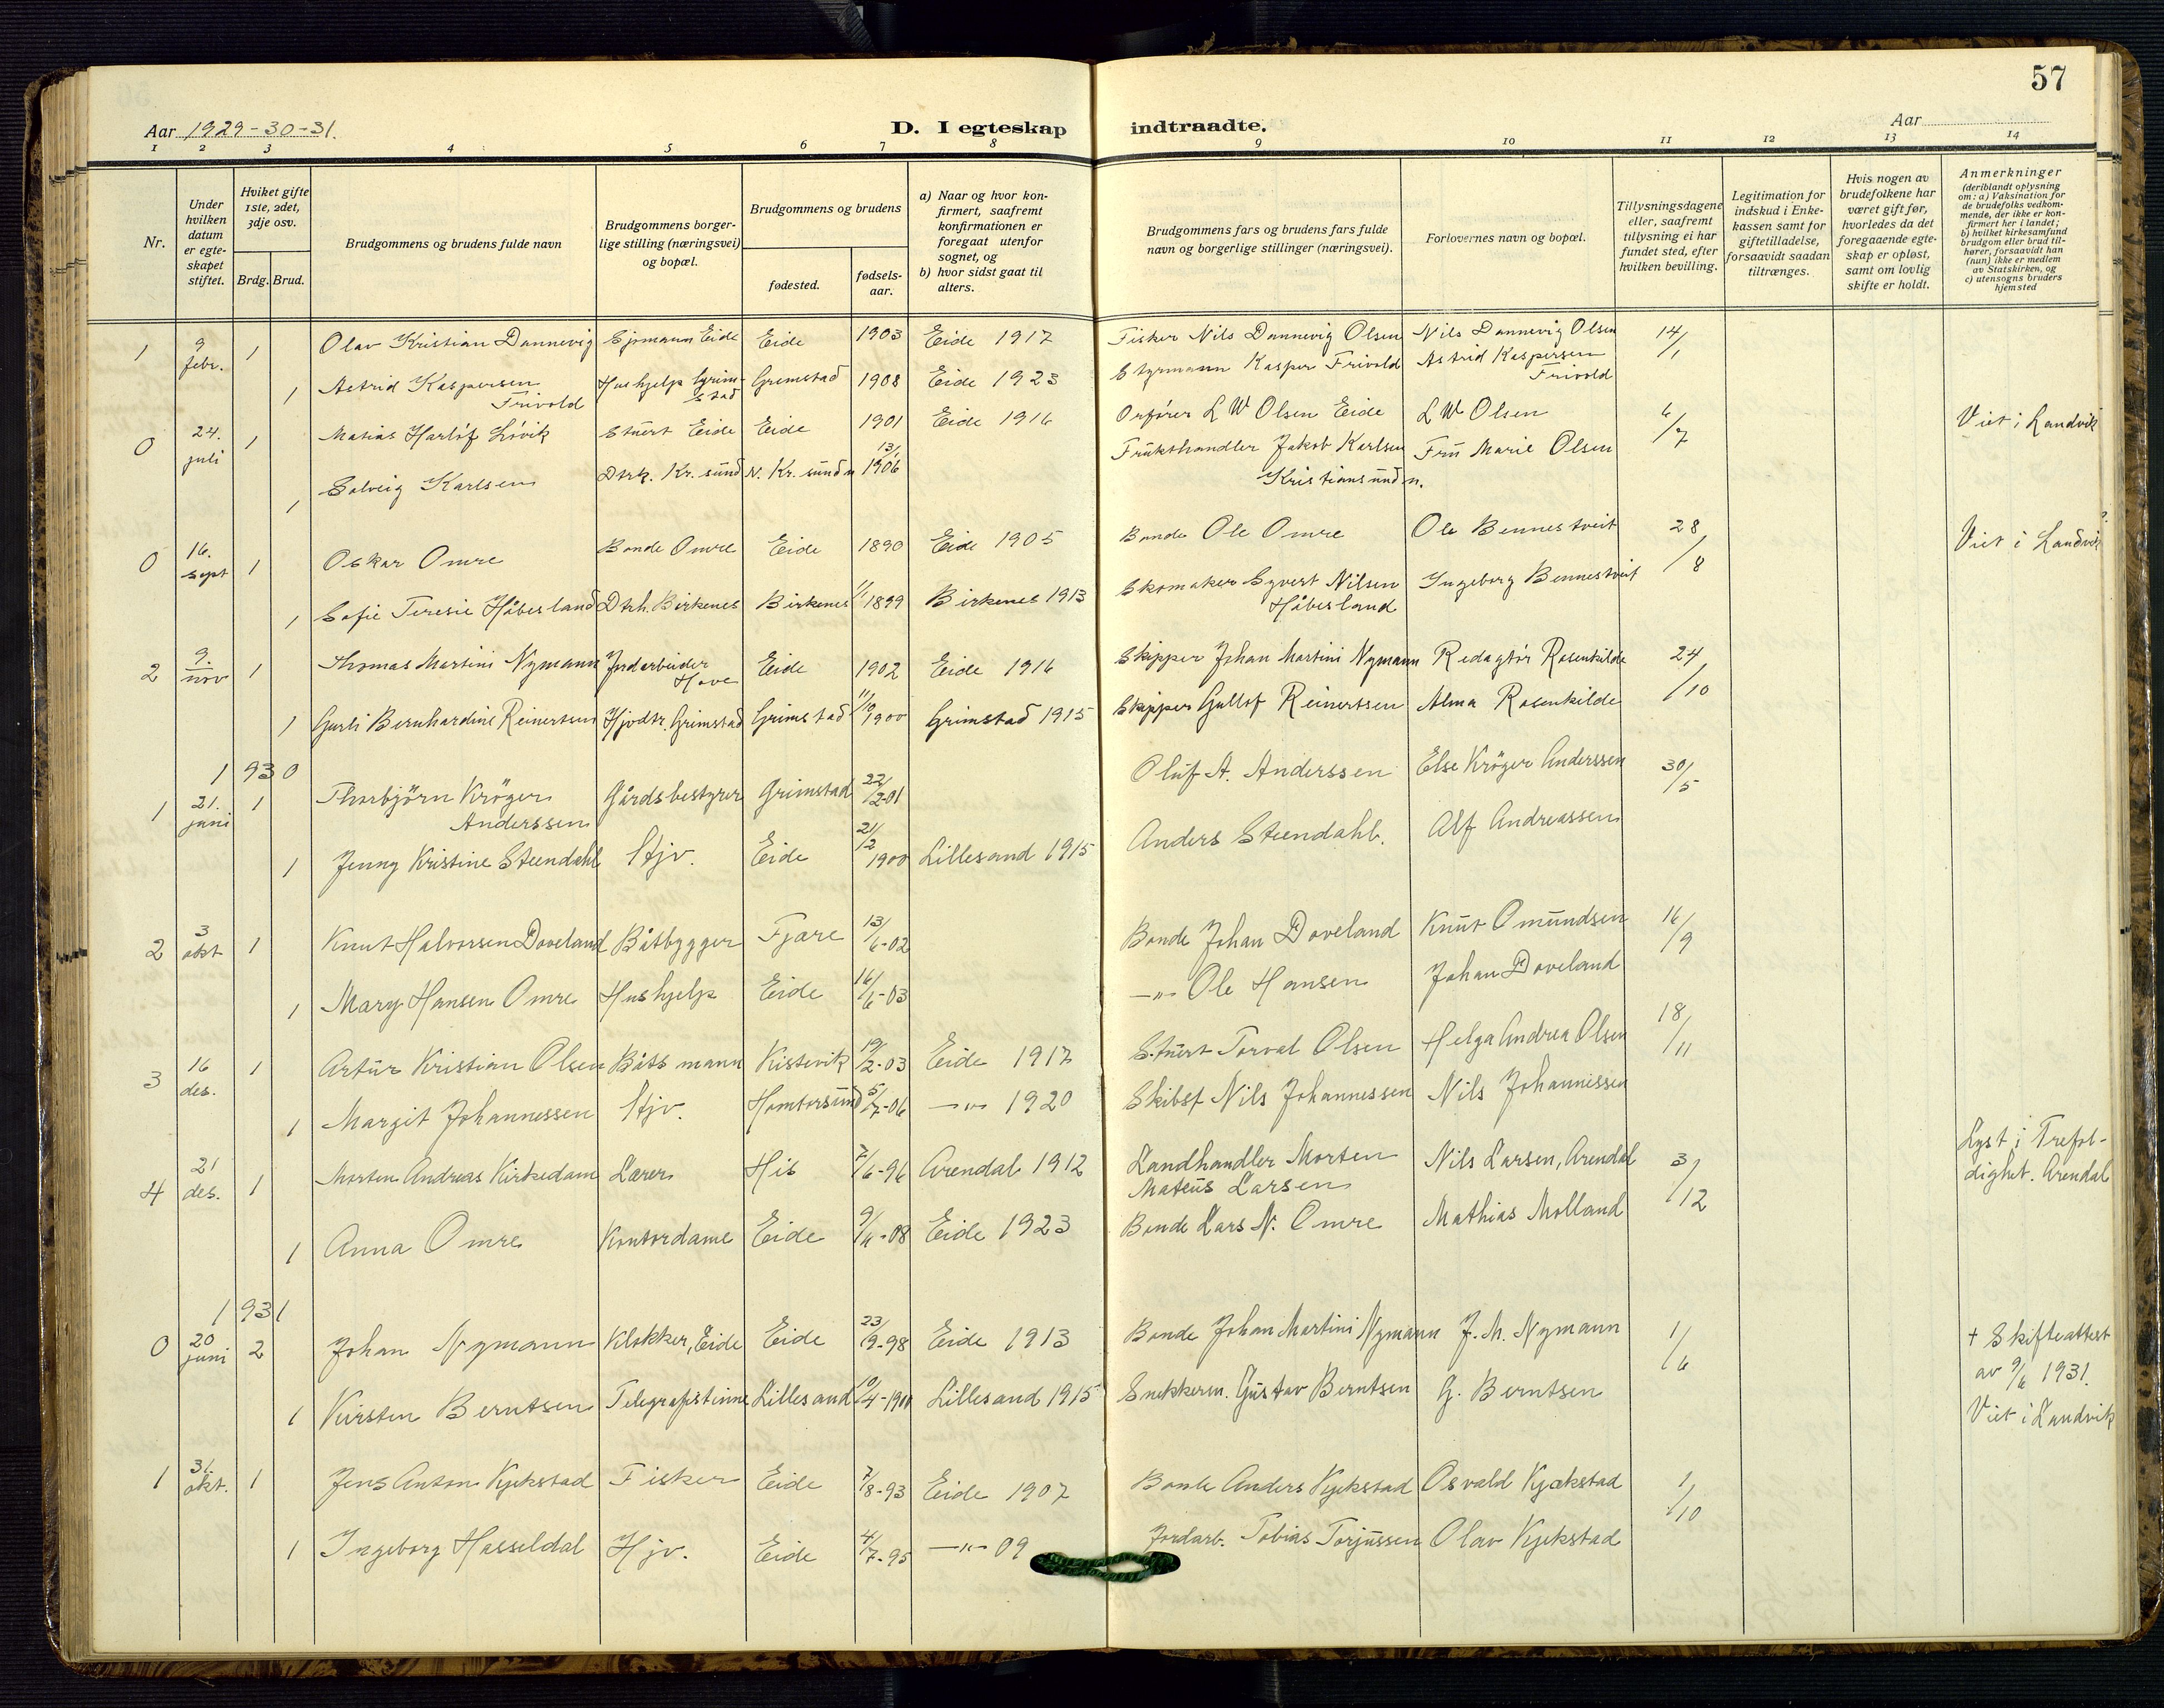 57
Aar 1929-30-31.
D. I egteskap indtraadte.
Aar
1 2 3 4 5 6 7 8 9 10 11 12 13 14
Nr.
Under hvilken datum er egteskapet stiftet.
Hviket gifte 1ste, 2det, 3dje osv.
Brdg. Brud.
Brudgommens og brudens fulde navn
Brudgommens borgerlige stilling (næringsvei) og bopæl.
Brudgommens og brudens
fødested.
fødselsaar.
a) Naar og hvor konfirmert, saafremt konfirmationen er foregaat utenfor sognet, og
b) hvor sidst gaat til alters.
Brudgommens fars og brudens fars fulde navn og borgerlige stillinger (næringsvei).
Forlovernes navn og bopæl.
Tillysningsdagene eller, saafremt tillysning ei har fundet sted, efter hvilken bevilling.
Legitimation for indskud i Enkekassen samt for giftetilladelse, forsaavidt saadan tiltrænges.
Hvis nogen av brudefolkene har været gift før, hvorledes da det foregaaende egteskap er opløst, samt om lovlig skifte er holdt.
Anmerkninger
(deriblandt oplysning om: a) Vaksination for de brudefolks vedkommende, der ikke er konfirmert her i landet; b) hvilket kirkesamfund brudgom eller brud tilhører, forsaavidt han (hun) ikke er medlem av Statskirken, og c) utensogns bruders hjemsted
1 9 febr. 1 Olav Kristian Dannevig Sjømann Eide Eide 1903 Eide 1917 Fisker Nils Dannevig Olsen Nils Dannevig Olsen 14/1
1 Astrid Kaspersen Frivold Hushjelp Grimstad Grimstad 1908 Eide 1923 Styrmann Kasper Frivold Astrid Kaspersen Frivold
0 24. juli 1 Matias Harlöf Lövik Stuert Eide Eide 1901 Eide 1916 L W Olsen Eide L W Olsen 6/7 Viet i Landvik
1 Solveig Karlsen Kr. sund N. Kr. sund n 13/1 1906 Frukthandler Jakob Karlsen Kristiansund n. Fru Marie Olsen
0 16. sept 1 Oskar Omre Bonde Omre Eide 1890 Eide 1905 Bonde Ole Omre Ole Bennestveit 28/8 Viet i Landvik
1 Sofie Teresie Håbesland Dtrh. Birkenes Birkenes 1/1 1899 Birkenes 1913 Skomaker Syvert Nilsen Håbesland Ingeborg Bennestveit
2 9. nov 1 Thomas Martini Nymann Jordarbeider Hove Eide 1902 Eide 1916 Skipper Johan Martini Nymann Redagtör Rosenkilde 24/10
1 Gusli Bernhardine Reinertsen Hjvdtr. Grimstad Grimstad 11/9 1900 Grimstad 1915 Skipper Gullof Reinertsen Alma Rosenkilde
1930
1 21. juni 1 Thorbjörn Kröger Anderssen Gårdsbestyrer Grimstad 22/2-01 Oluf A. Anderssen Else Kröger Anderssen 30/5
1 Jenny Kristine Steendahl Hjv. Eide 21/2 1900 Lillesand 1915 Anders Steendahl. Alf Andreassen
2 3 okt 1 Knut Halvorsen Doveland Båtbygger Fjære 13/6-02 Bonde Johan Doveland Knut Omundsen 16/9
1 Mary Hansen Omre Hushjelp Eide 16/6-03 —"— Ole Hansen Johan Doveland
3 16 des. 1 Artur Kristian Olsen Båtsmann Kistevik 19/2-03 Eide 1917 Stuert Torval Olsen Helga Andrea Olsen 18/11
1 Margit Johannessen Hjv. Homborsund 5/7-06 —"— 1920 Skibsf Nils Johannessen Nils Johannissen
4 21 des. 1 Morten Andreas Kirkedam Lærer His 7/6-96 Arendal 1912 Landhandler Morten Mateus Larsen Nils Larsen, Arendal 3/12 Lyst i Trefoldighet. Arendal
1 Anna Omre Kontordame Eide 9/6-08 Eide 1923 Bonde Lars N. Omre Mathias Molland
1931
0 20 juni 2 Johan Nymann Klokker, Eide Eide 23/9-98 Eide 1913 Bonde Johan Martini Nymann J. M. Nymann 1/6 + Skifteattest av 9/6 1931. Viet i Landvik
1 Kirsten Berntsen Telegrafistinne Lillesand 10/4-1900 Lillesand 1915 Snekkerm. Gustav Berntsen G. Berntsen
1 31. okt. 1 Jens Anton Kjekstad Fisker Eide 7/8-93 Eide 1907 Bonde Anders Kjekstad Osvald Kjækstad 1/10
1 Ingeborg Hasseldal Hjv. Eide 4/7-95 —"— 09 Jordarb. Tobias Torjussen Olav Kjekstad